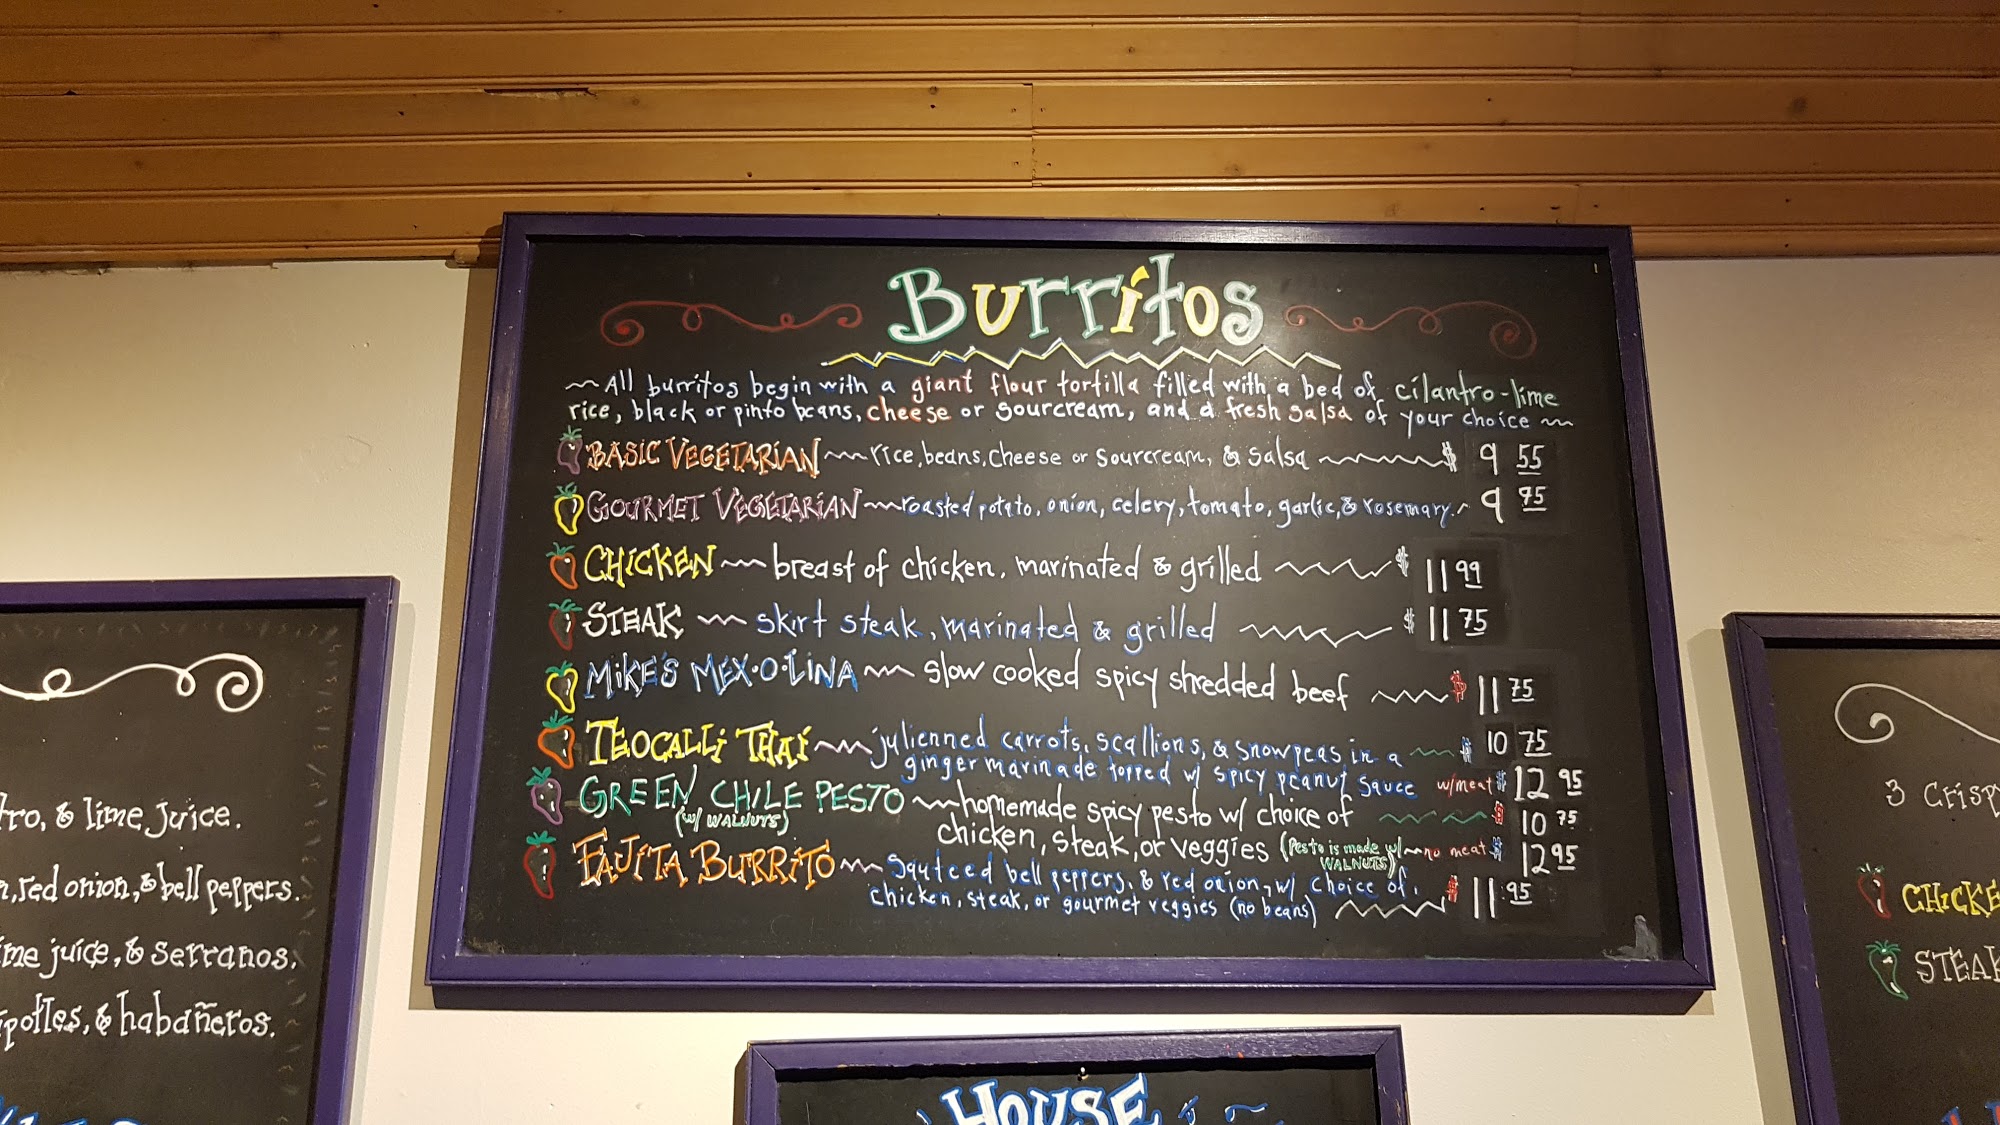 Burritos
All burritos begin with a giant flour tortilla filled with a bed of cilantro-lime
rice, black or pinto beans, cheese or sourcream, and a fresh salsa of your choice
BASIC VEGETARIAN rice, beans, cheese or sourcream, & salsa $ 9 55
GOURMET VEGETARIAN roasted potato, onion, celery, tomato, garlic, & rosemary. 9 95
CHICKEN breast of chicken, marinated & grilled $ 11 99
STEAK skirt steak, marinated & grilled $ 11 75
MIKE'S MEX·O·LINA slow cooked spicy shredded beef $ 11 75
TEOCALLI THAI julienned carrots, scallions, & snowpeas in a $ 10 75
ginger marinade topped w/ spicy peanut sauce w/meat $ 12 95
GREEN CHILE PESTO homemade spicy pesto w/ choice of $ 10 75
(w/ WALNUTS)
chicken, steak, or veggies (Pesto is made w/ no meat $ 12 95
WALNUTS)
FAJITA BURRITO sauteed bell peppers, & red onion, w/ choice of
chicken, steak, or gourmet veggies (no beans) $ 11.95
& lime juice.
red onion, & bell peppers.
juice, & serranos.
& habañeros.
HOUSE
3
STEAK